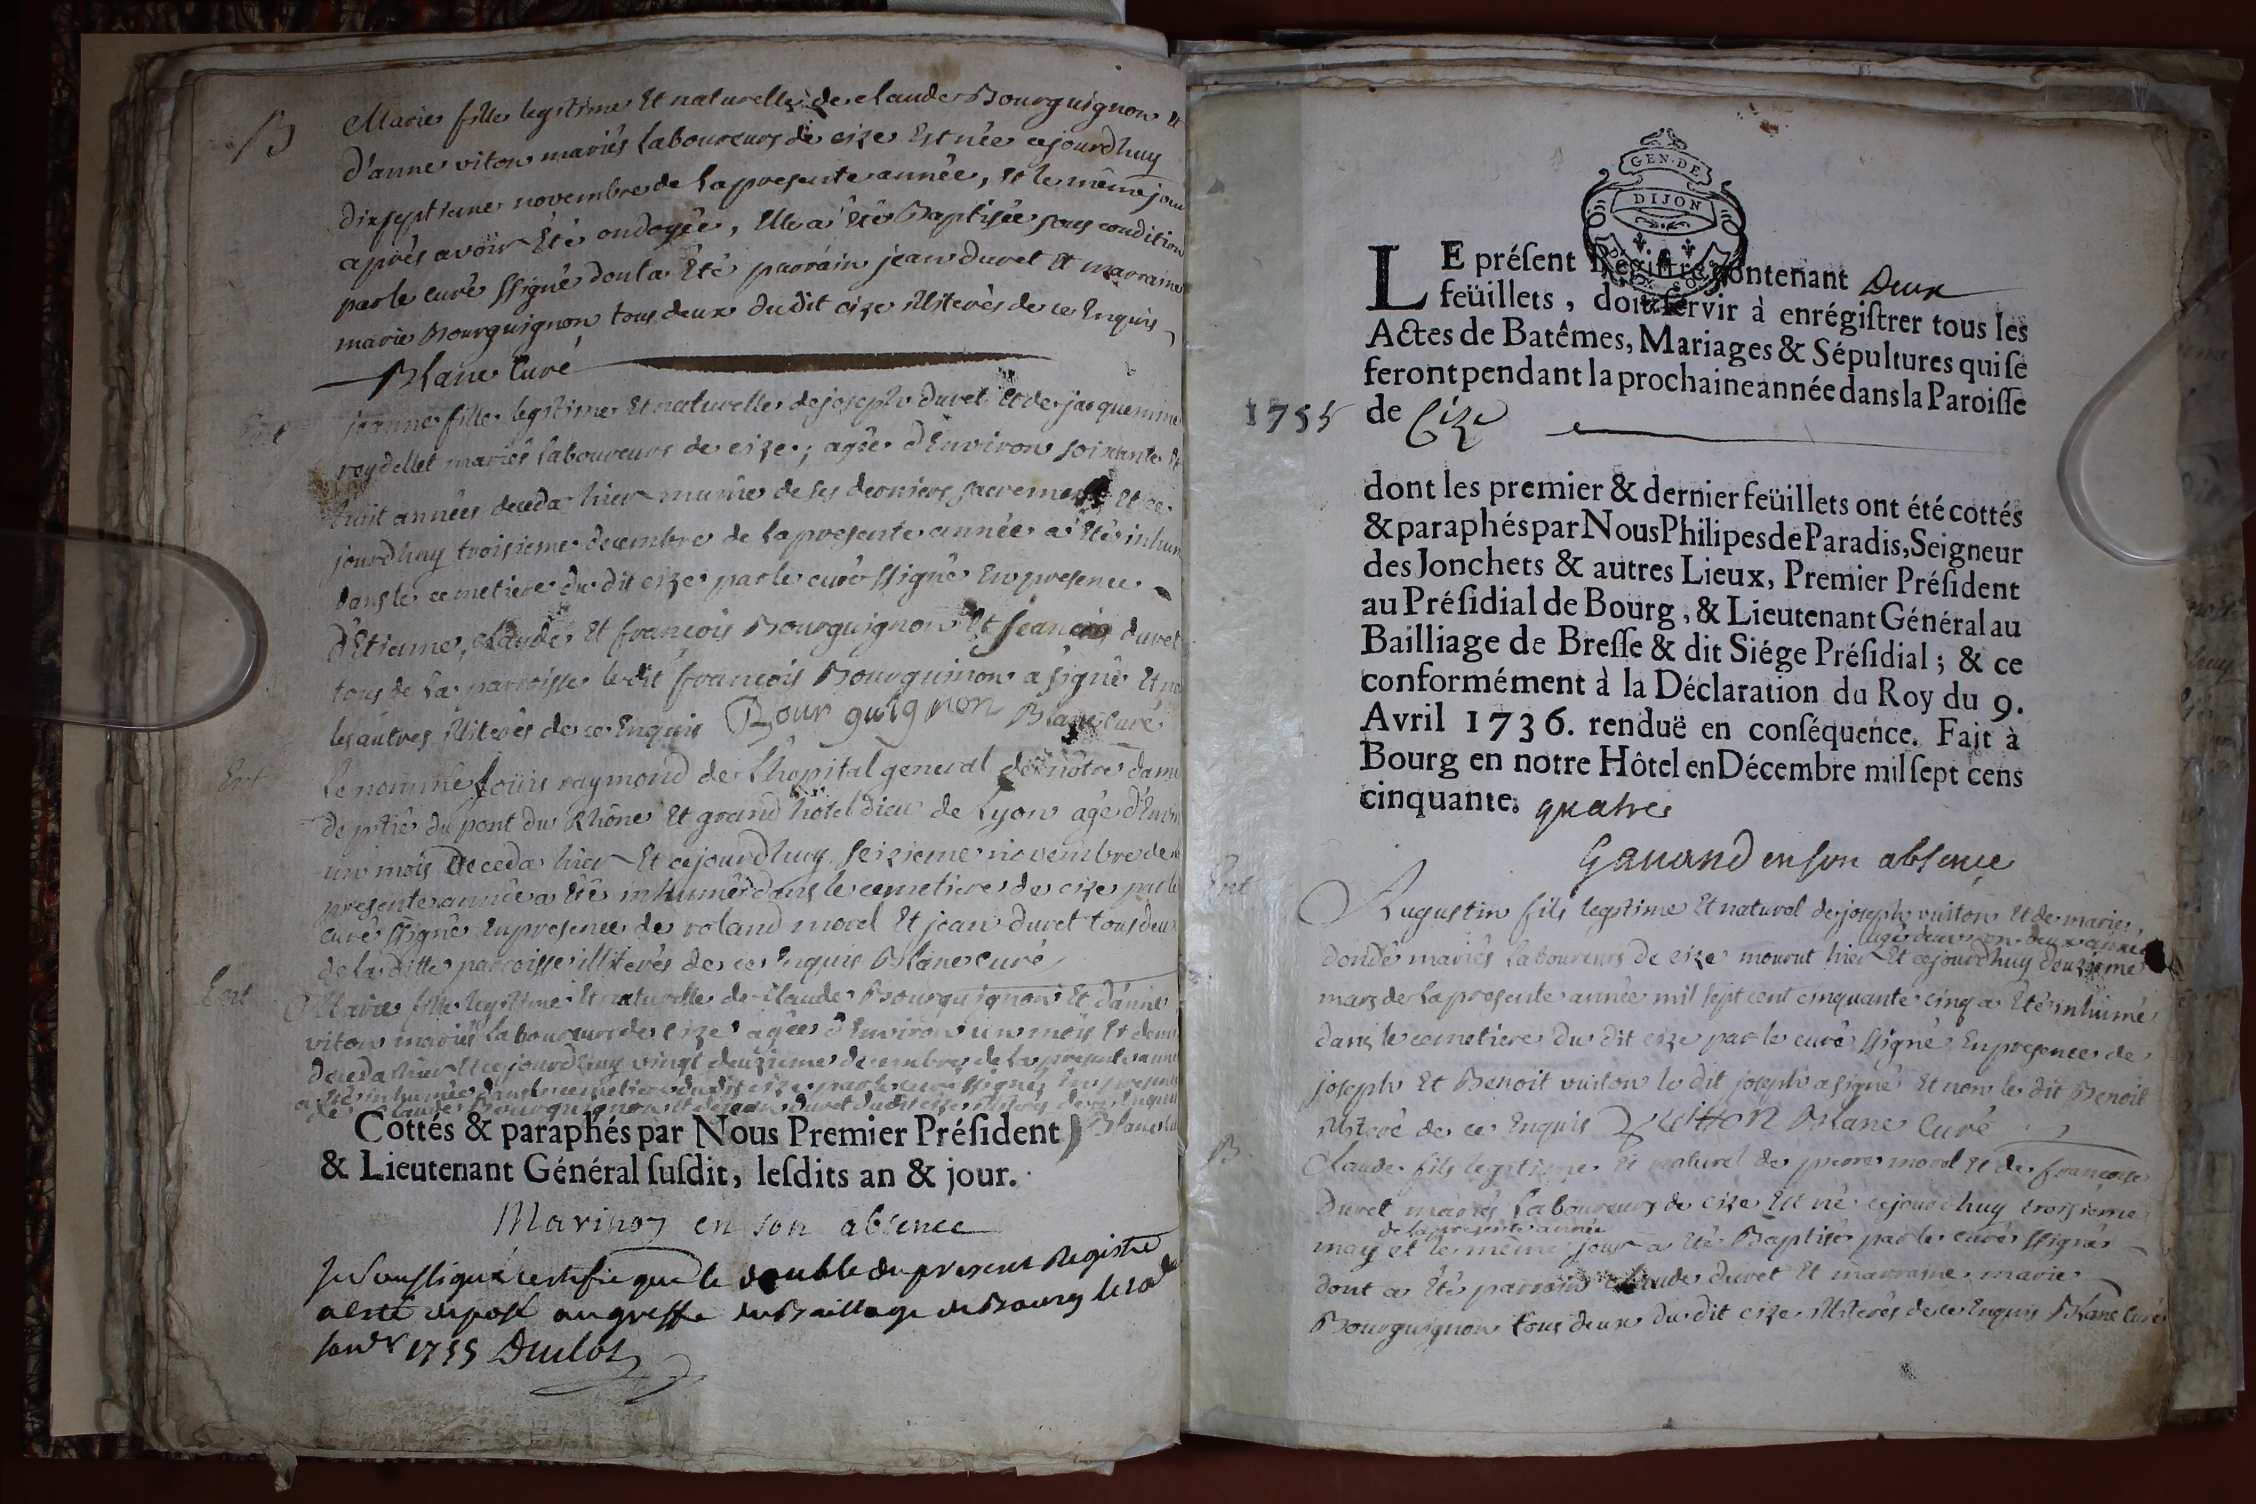 B
Marie fille legitime Et naturelle de claude Bourguignon Et
d'anne viton mariés laboureurs de cize Est née cejourdhuy
dixseptieme novembre de la presente année, Et le même jour
après avoir Eté ondoyée, Elle a Eté Baptisée sous condition
par le curé ssigné dont a Eté parrain jean duret Et marraine
marie Bourguignon tous deux du dit cize illiterés de ce Enquis
Blanc Curé
Ent
jeanne fille legitime Et naturelle de joseph duret Et de jacquemine
reydellet mariés laboureurs de cize; agée d'Environ soixante Et
huit années deceda hier munie de ses derniers sacrements Et ce
jourdhuy troisieme decembre de la presente année a Eté inhumée
dans le cemetiere du dit cize par le curé ssigné En presence
d'Etienne, claude Et françois Bourguignon Et jean duret
tous de la parroisse le dit françois Bourguinon a signé Et non
les autres illiterés de ce Enquis Bourguignon Blanc Curé
Ent
Le nommé Loüis raymond de L'hopital general de nôtre dame
de pitié du pont du Rhône Et grand hôtel dieu de Lyon agé d'Environ
un mois deceda hier Et cejourdhuy seizieme novembre de la
presente année a Eté inhumé dans le cemetiere de cize par le
curé ssigné En presence de roland morel Et jean duret tous deux
de la ditte parroisse illiterés de ce Enquis Blanc curé
Ent
Marie fille legitime Et naturelle de claude Bourguignon Et d'anne
viton mariés laboureurs de cize agée d'Environ un mois Et demi
deceda hier Et cejourdhuy vingt deuzieme decembre de la presente année
a Eté inhumée dans le cemetiere du dit cize par le curé ssigné En presence
de claude Bourguignon Et de jean duret du dit cize illiterés de ce Enquis
Blanc Curé
Cottés & paraphés par Nous Premier Préſident
& Lieutenant Général ſuſdit, leſdits an & jour.
Marinon en son absence
Je Soussigné certifie que le double du present Registre
a esté deposé au greffe du Baillage de Bourg le 10e
janvr 1755 Duclos
GEN · DE
DIJON
LE préſent Regiſtre contenant Deux
feüillets, doit ſervir à enrégiſtrer tous les
Actes de Batêmes, Mariages & Sépultures qui ſe
feront pendant la prochaine année dans la Paroiſſe
1755 de Cize
dont les premier & dernier feüillets ont été cottés
& paraphés par Nous Philipes de Paradis, Seigneur
des Jonchets & autres Lieux, Premier Préſident
au Préſidial de Bourg, & Lieutenant Général au
Bailliage de Breſſe & dit Siége Préſidial ; & ce
conformément à la Déclaration du Roy du 9.
Avril 1736. renduë en conſéquence. Fait à
Bourg en notre Hôtel en Décembre mil ſept cens
cinquante. quatre
en son absence
Ent
Augustin fils legitime Et naturel de joseph vuiton Et de marie
agé d'environ deux années
dondé mariés laboureurs de cize mourut hier Et cejourdhuy deuzieme
mars de la presente année mil sept cent cinquante cinq a Eté inhumé
dans le cemetiere du dit cize par le curé ssigné En presence de
joseph Et Benoit vuiton le dit joseph a signé Et non le dit Benoit
illiteré de ce Enquis vuitton Blanc Curé
B
Claude fils legitime Et naturel de pierre morel Et de françoise
Duret mariés laboureurs de cize Est né cejourdhuy troisieme
de la presente année
may et le même jour a Eté Baptisé par le curé ssigné
dont a Eté parrain claude duret Et marraine marie
Bourguignon tous deux du dit cize illiterés de ce Enquis Blanc Curé